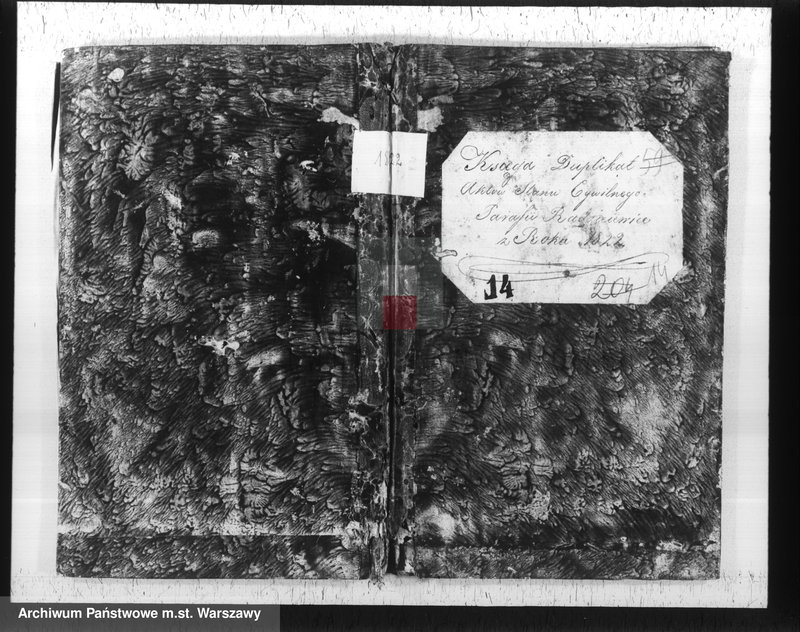 1822
Księga Duplikat
Aktów Stanu Cywilnego
Parafii
z Roku 1822
14
204
14
Archiwum Państwowe m.st. Warszawy